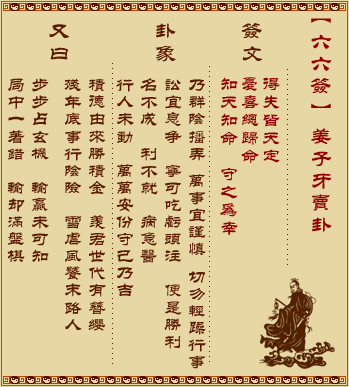 【六六簽】 姜子牙賣卦
簽文
得失皆天定
憂喜總歸命
知天知命 守之爲幸
卦象
乃群陰播弄 萬事宜謹慎 切勿輕躁行事
訟宜息爭 寧可吃虧頭注 便是勝利
名不成 利不就 病急醫
行人未動 萬萬安份守己乃吉
又曰
積德由來勝積金 羨君世代有簪纓
後年底事行陰險 雪虐風饕末路人
步步占玄機 輸贏未可知
局中一著錯 輸却滿盤棋